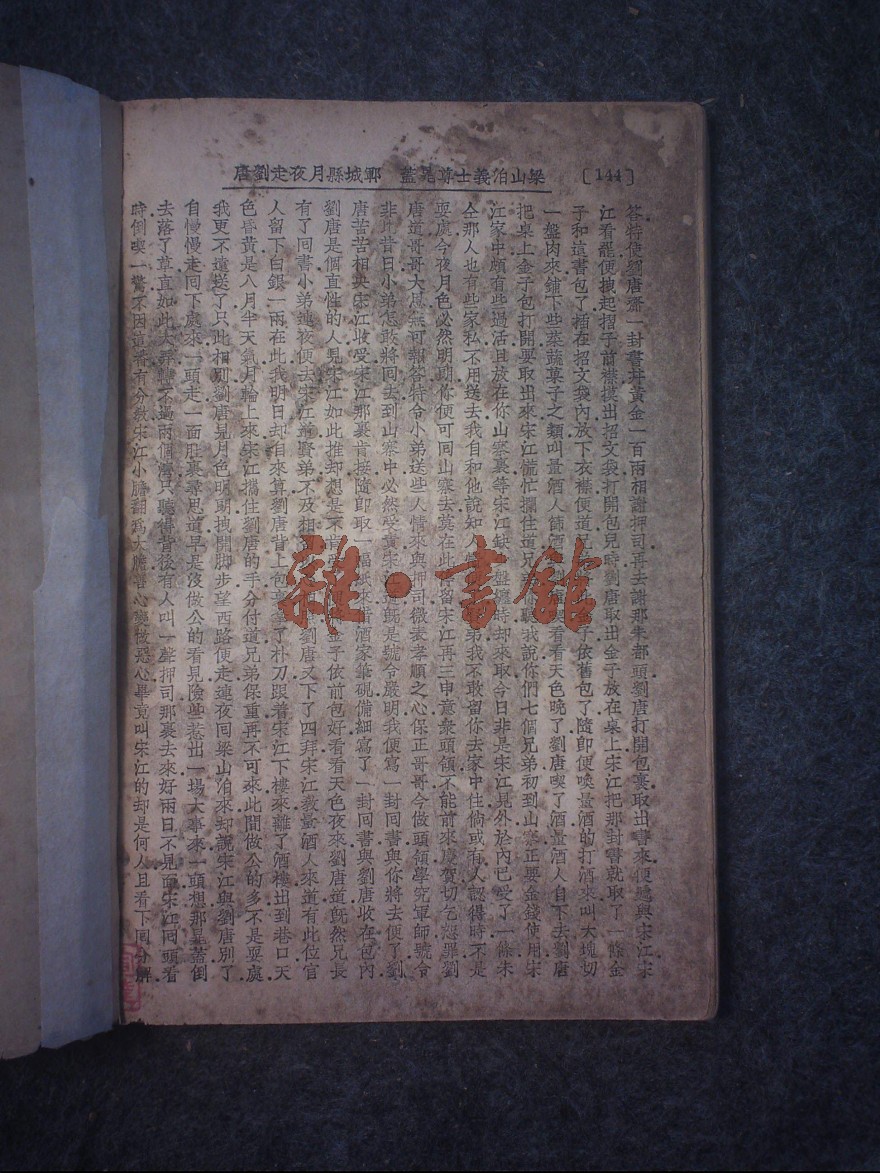 [144]
梁山泊義士尊晁蓋 鄆城縣月夜走劉唐
答特使劉唐齎一封書幷黃金一百兩相謝押司再去謝那朱都頭劉唐打開包裹取出書來便遞與宋江宋
江看罷便拽起摺子前襟摸出招文袋打開包兒時劉唐取出金子放在桌上宋江把那封書就取了一條金
子和這書包了插在招文袋內放下衣襟便道 子依舊包了隨卽便喚量酒的打酒來叫大塊切
一盤肉來鋪下些菜蔬菓子之類叫量酒人篩酒 喫看看天色晚了劉唐喫了酒量酒人自下去劉唐
把桌上金子包打開要取出來宋江慌忙攔住道兄 聽我說你們七個兄弟初到山寨正要金錢使用宋
江家中頗有些過活且放在你山寨裏等宋江缺 盤纏時却來取今日非是宋江見外於內已受了一條朱
仝那人也有些家私不用送去我自和他說知人 弟我不敢留你去家中住倘或有人認得時不是
耍處今夜月色必然明朗你便可回山寨去莫在此 留宋江再三申意衆頭領不能前來慶賀切乞恕罪劉
唐道哥哥大恩無可報答特令小弟送些人情來與押司微表孝順之心保正哥哥今做頭領學究軍師號令
非比昔日小弟怎敢將回去到山寨中必然受責宋 旣是號令嚴明我便寫一封回書與你將去便了劉
唐苦苦相央宋江收受宋江那裏肯接隨卽取一幅紙來借酒家筆硯備細寫了一封回書與劉唐收在包內
劉唐是個直性的人見宋江如此推却想是不肯受 金子依前包好看看天色夜來劉唐道旣然兄長
有了回書小弟連夜便去宋江道賢弟不及相 劉唐又下了四拜宋江敎量酒人來道有此位官
人留下白銀一兩在此我明日却自來算劉唐背上包裹 了朴刀跟着宋江下樓來離了酒樓出到巷口天
色昏黃是八月半天氣月輪上來宋江攜住劉唐的手分付道兄弟保重再不可來此間做公的多不是耍處
我更不遠送了只此相別劉唐見月色明朗拽開脚步望西路便走連夜回梁山泊來却說宋江與劉唐別了
自慢慢走回下處來一頭走一面肚裏尋思道早是沒做公的看見險些惹出一場大事來一頭想那晁蓋倒
去落了草直如此大弄轉不過兩個彎只聽得背後有人叫一聲押司那裏去來好兩日不見面宋江回頭看
時倒喫一驚不因這番有分敎宋江小膽翻爲大膽善心變做惡心畢竟叫宋江的却是何人且看下回分解
雜·書館